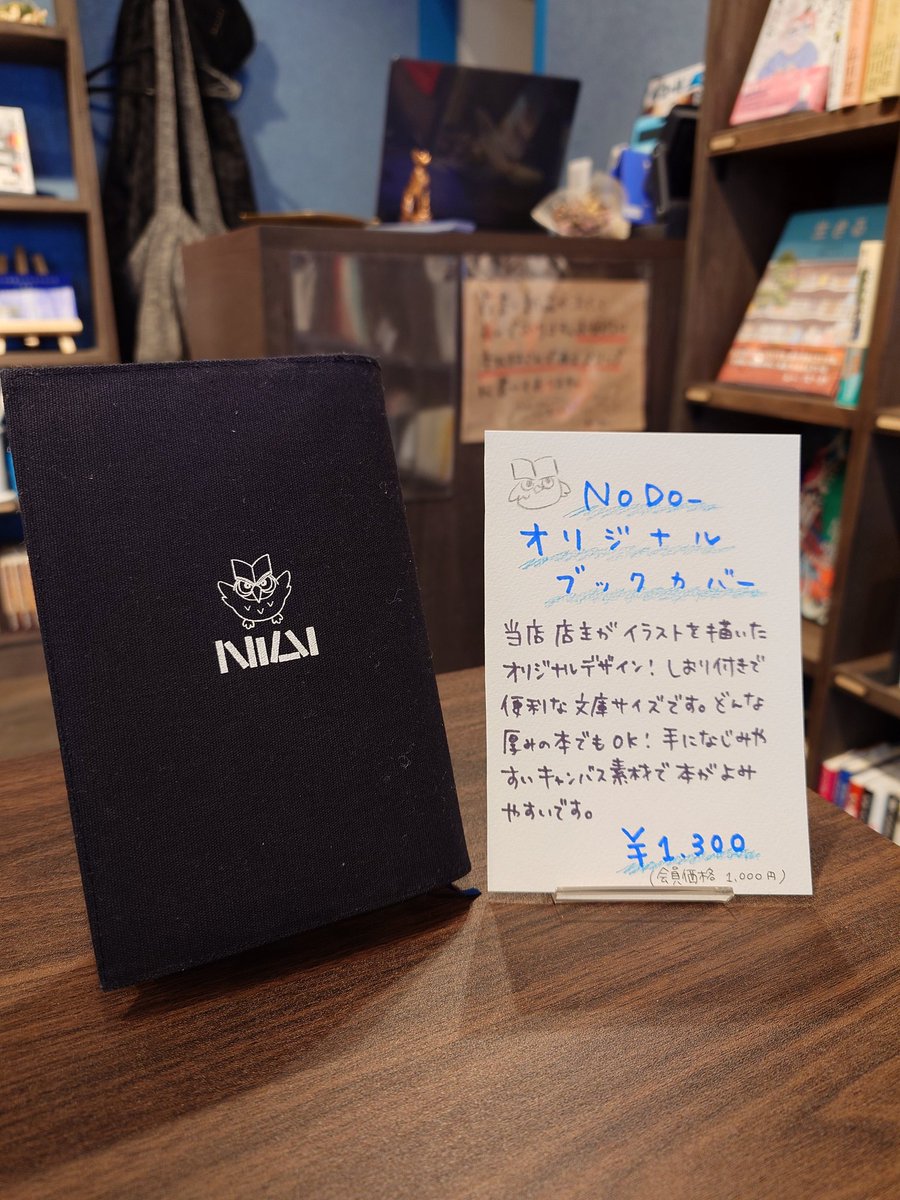 NoDo-
オリジナル
ブックカバー
当店店主がイラストを描いた
オリジナルデザイン！しおり付きで
便利な文庫サイズです。どんな
厚みの本でもOK！手になじみや
すいキャンバス素材で本がよみ
やすいです。
¥1,300
(会員価格 1,000円)
生きる